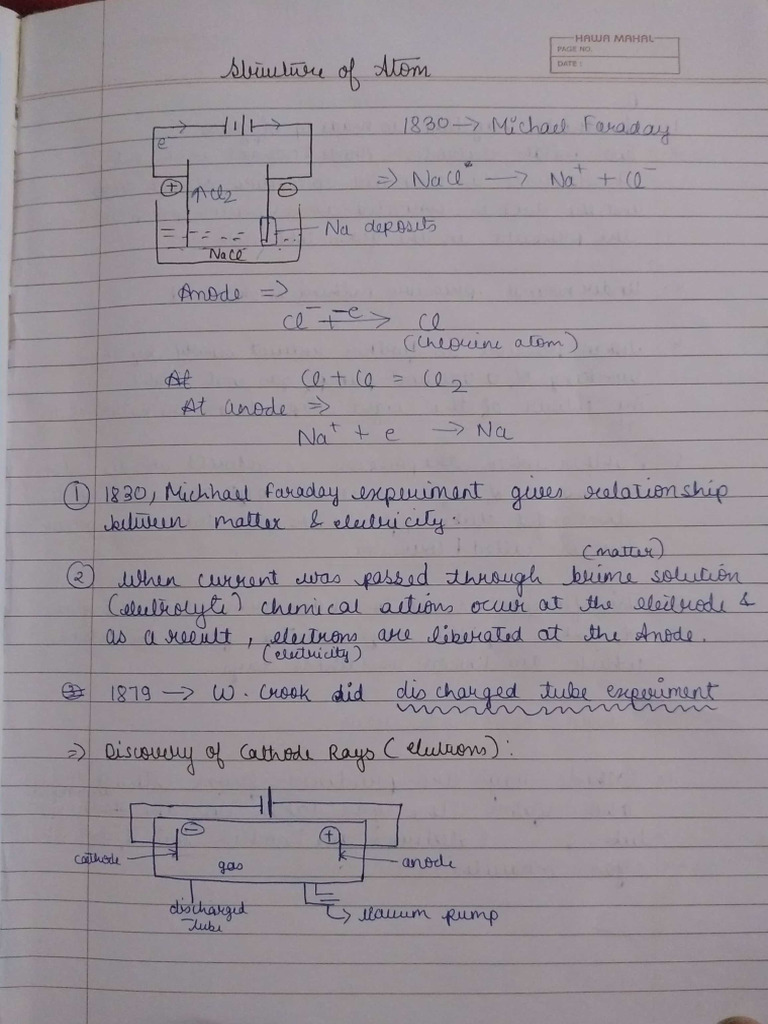 HAWA MAHAL
PAGE NO.
DATE :
Structure of Atom
1830 → Michael Faraday
e⁻
⊕ ↑Cl2 ⊖
⇒ NaCl → Na⁺ + Cl⁻
Na deposits
NaCl
Anode ⇒
Cl⁻ –e→ Cl
(Chlorine atom)
At Cl + Cl = Cl2
At anode ⇒
Na⁺ + e → Na
① 1830, Michhael Faraday experiment gives relationship
between matter & electricity.
(matter)
② When current was passed through brime solution
(electrolyte) chemical actions occur at the electrode &
as a result, electrons are liberated at the Anode.
(electricity)
③ 1879 → W. Crook did discharged tube experiment
⇒ Discovery of Cathode Rays (electrons):
⊖ ⊕
cathode gas anode
discharged
Tube
Vacuum pump